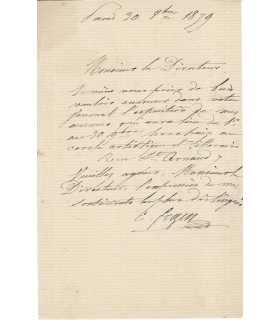 Paris 30 8bre 1879
Monsieur le Directeur
Je viens vous prier de bien
vouloir annoncer dans votre
journal l'exposition de mes
œuvres qui aura lieu du 1er
au 30 9bre prochain au
cercle artistique et littéraire
Rue St Arnaud 7
Veuillez agréer, Monsieur le
Directeur, l'expression de mes
sentiments les plus distingués
E.